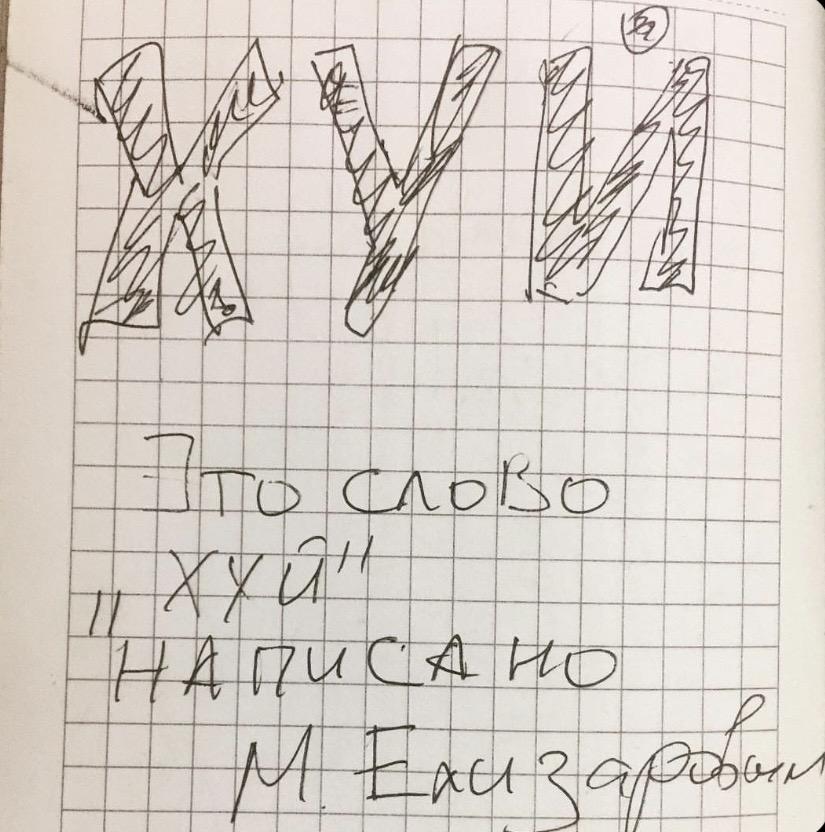 ХУЙ
Это слово
"ХУЙ"
написано
М. Елизаровым